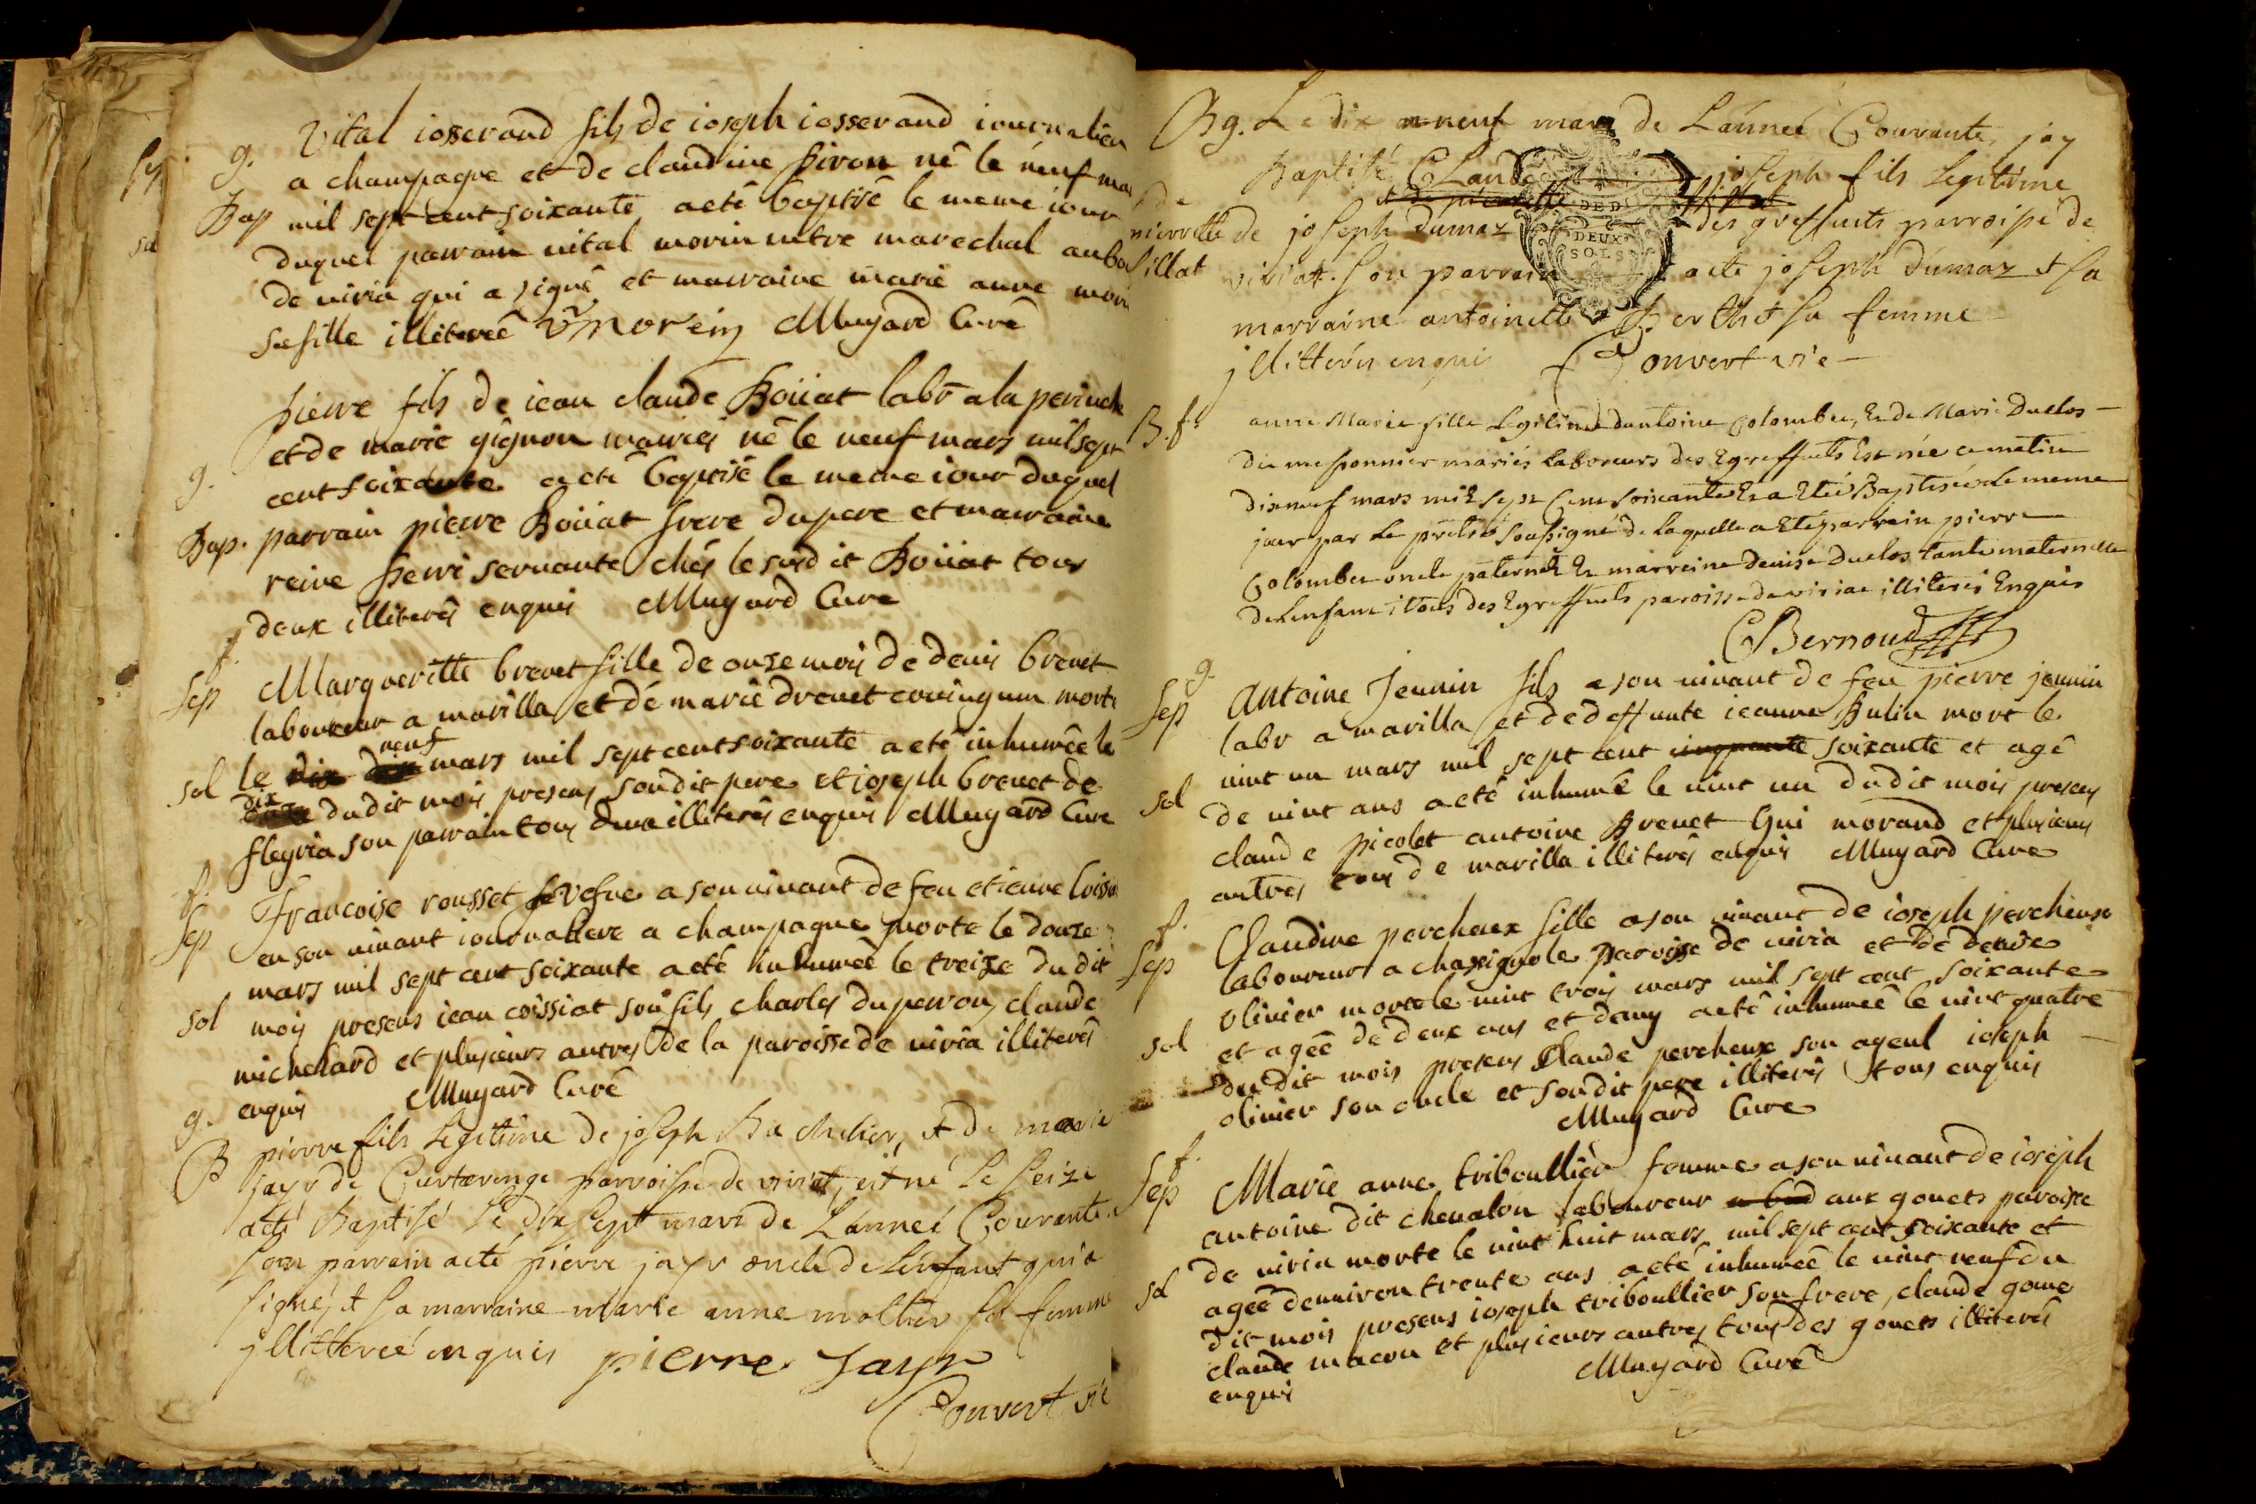 g. Vital iosserand fils de ioseph iosserand iournalier
a champagne et de claudine piron né le neuf mar
Bap mil sept cent soixante a eté baptisé le meme iour
duquel parrain vital morin mtre marechal au bo
de viria qui a signé et marraine marie anne mori
sa fille illiterée V morein Mugard Curé
pierre fils de iean claude Boüat labr a la perinche
et de marie gignon mariés né le neuf mars mil sept
g. cent soixante a eté baptisé le meme iour duquel
Bap. parrain pierre Boüat frere du pere et marraine
reine perri servante chés le susdit Boüat tous
deux illiterés enquis Mugard Cure
f.
Sep Margueritte brevet fille de onze mois de denis brevet
laboureur a marilla et de marie drevet morte
neuf
sol le dix mars mil sept cent soixante a eté inhumée le
dix
du dit mois presens son dit pere et ioseph brevet de
fleyria son parrain tous deux illiterés enquis Mugard Cure
f.
Sep Francoise rousset vefve a son vivant de feu etienne
en son vivant iournaliere a champagne morte le douze
mars mil sept cent soixante a eté inhumeé le treize du dit
sol mois presens iean coissiat son fils charles duperron claude
michelard et plusieurs autres de la paroisse de viria illiterés
enquis Mugard Curé
g.
B pierre fils Legitime de joseph Bachelier, et de marie
jayr de Curtaringe parroisse de viriat, est né le seize
a eté Baptisé le dix sept mars de L'anneé Courante.
son parrain a eté pierre jayr oncle de L'enfant qui a
signé, et sa marraine marie anne mollier sa femme
jllittereé enquis pierre Jayr
Convert vic
Bg. Le dix neuf mars de L'anneé Courante, jay
Baptisé Claude joseph fils Legitime
de joseph dumaz des greffiets parroisse de
et de
pierrette
sillat
viriat. son parrain a eté joseph dumaz et sa
DEUX
SOLS
marraine antoinette perthet sa femme
jllitterés enquis Convert vic
B. f. anne Marie fille Legitime dantoine Colomber, Et de Marie Duclos
mariés Laboureurs des Egreffiets Est née ce matin
dixneuf mars mil sept Cent soixante Et a Eté Baptisée Le meme
jour par Le pretre soussigné de Laquelle a Eté parrain pierre
Colomber oncle paternel Et marreine denise Duclos tante maternelle
de Lenfant tous des Egreffiets paroisse de viriat illiterés Enquis
C Bernoud
g.
Sep Antoine Jennin fils a son vivant de feu pierre jennin
labr a marilla et de deffunte ieanne Bulin mort le
vint un mars mil sept cent cinquante soixante et agé
sol de vint ans a eté inhumé le vint un du dit mois presens
claude picolet antoine Brevet Gui morand et plusieurs
autres tous de marilla illiterés enquis Mugard Cure
f.
Sep Claudine percheux fille a son vivant de ioseph percheux
laboureur a chassignole paroisse de viria et de denise
olivier morte le vint trois mars mil sept cent soixante
sol et agée de deux ans et demy a eté inhumeé le vint quatre
du dit mois presens Claude percheux son ayeul ioseph
olivier son oncle et son dit pere illiterés tous enquis
Mugard Cure
f.
Sep Marie anne triboullier femme a son vivant de ioseph
antoine dit chevalon laboureur aux gouets paroisse
de viria morte le vint huit mars mil sept cent soixante et
sol agée denviron trente ans a eté inhumeé le vint neuf du
dit mois presens ioseph triboullier son frere, claude
claude macon et plusieurs autres tous des gouets illiterés
enquis Mugard Curé